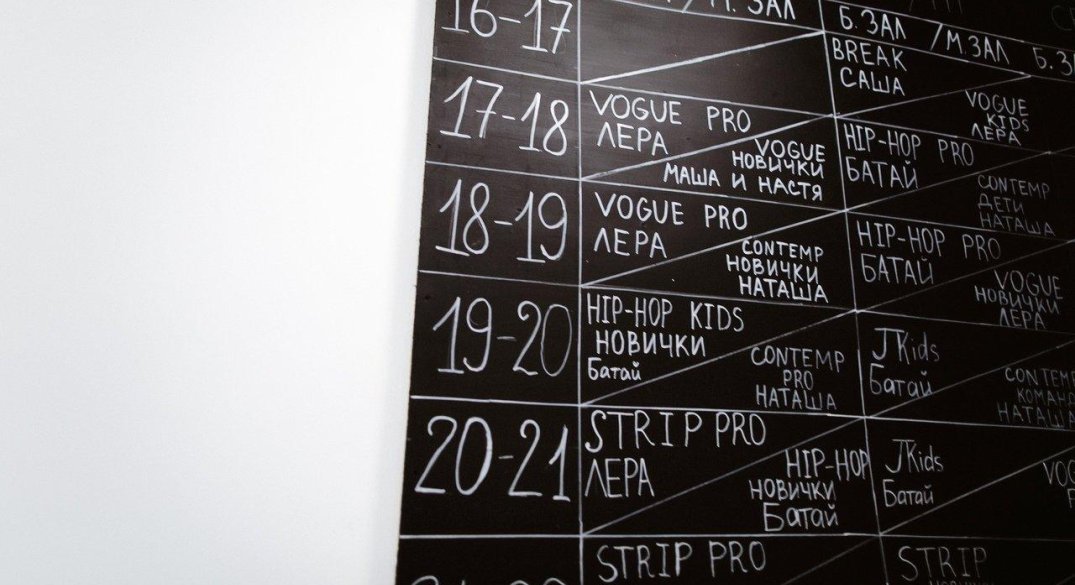 М. ЗАЛ
Б. ЗАЛ / М.ЗАЛ
16-17
BREAK
САША
VOGUE
KIDS
ЛЕРА
17-18
VOGUE PRO
ЛЕРА
VOGUE
НОВИЧКИ
МАША И НАСТЯ
HIP-HOP PRO
БАТАЙ
CONTEMP
ДЕТИ
НАТАША
18-19
VOGUE PRO
ЛЕРА
CONTEMP
НОВИЧКИ
НАТАША
HIP-HOP PRO
БАТАЙ
VOGUE
НОВИЧКИ
ЛЕРА
19-20
HIP-HOP KIDS
НОВИЧКИ
Батай
CONTEMP
PRO
НАТАША
JKids
Батай
CONTEMP
НАТАША
20-21
STRIP PRO
ЛЕРА
HIP-HOP
НОВИЧКИ
Батай
JKids
Батай
STRIP PRO
STRIP